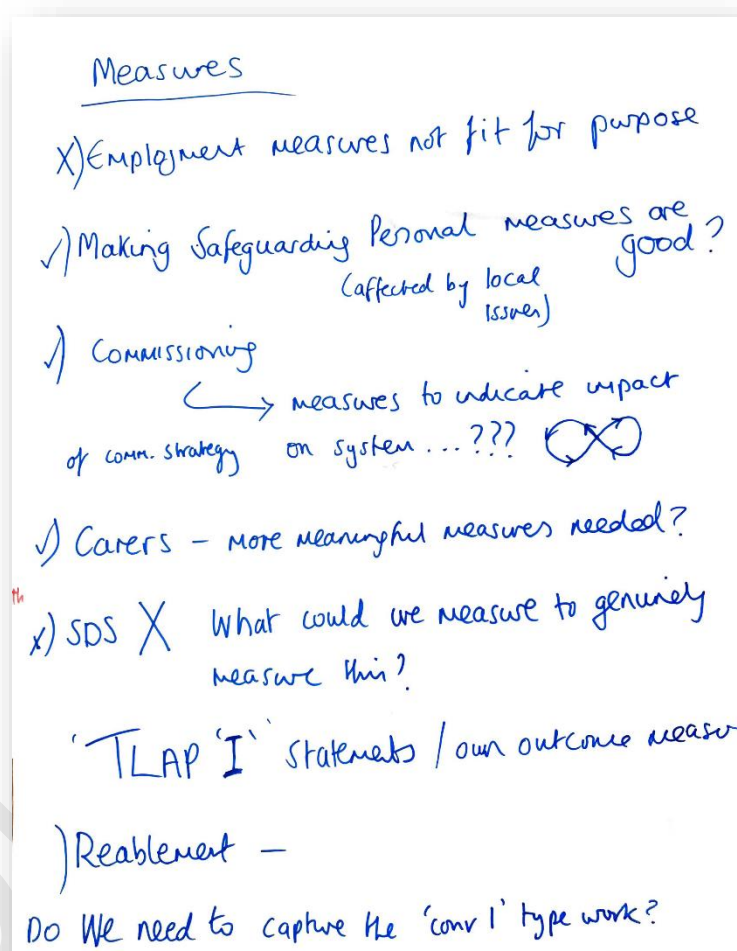 Measures
X) Employment measures not fit for purpose
✓) Making Safeguarding Personal measures are
good?
(affected by local
issues)
✓) Commissioning
→ measures to indicate impact
of comm. strategy on system...???
✓) Carers – more meaningful measures needed?
th
x) SDS X What could we measure to genuinely
measure this?
'TLAP 'I' statements / own outcome measu
) Reablement –
Do we need to capture the 'conv 1' type work?